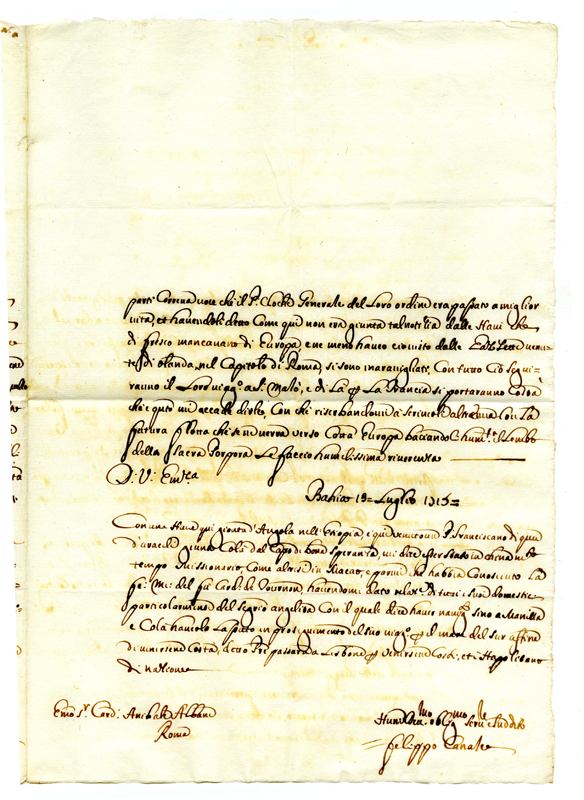 parti Correva voce che il P. Cloche Generale del Loro ordine era passato a miglior
vita, et havendoli detto Come qui non era giunta tal notitia dalle Navi che
di fresco mancavano di Europa, e ne meno havevo
di olanda, nel Capitolo di Roma, si sono maravigliati, Con tutto Ciò segui-
ranno il Loro viag.o a S. Malò, e di Là per La Francia si portaranno Costà
che è quto mi accade dirle, Con che riserbandomi a scriverle Con La
futura flotta che se ne verrà verso Cotta Europa baciando L' hum.te il Lembo
della Sacra Porpora Le faccio humilissima riverenza
D: V: Emza
Bahia 19 Luglio 1715
Con una Nave qui gionta d'Angola nell'Etiopia, è qui venuto un P. Franciscano di
giunto Colà dal Capo di bona Speranza, mi dice esser stato in China
tempo Missionario, Come altresì in Macao, e parmi che habbia Conosciuto La
fe: Me: del fù Card. de Tournon, havendomi dato relat.e di tutti i suoi domestici
particolarmente del Segrio angelita Con il quale dice haver navig.to sino a Manilla
e Colà haverlo Lasciato in proseguimento del suo viag.o per il mar del Sur affine
di venirsene Costà, detto Pre passarà a Lisbona per venirsene Costì, et è Napolitano
di natione
Emo Sr. Card: Anibale Albani
Roma
Humilissmo oblig.mo
Felippo Canale